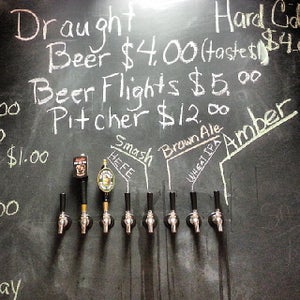 Draught
Hard Cid
Beer $4.00 (tastes $
$4.
Beer Flights $5.00
Pitcher $12.00
$1.00
Smash
HEFE
Brown Ale
IPA
Amber
ay